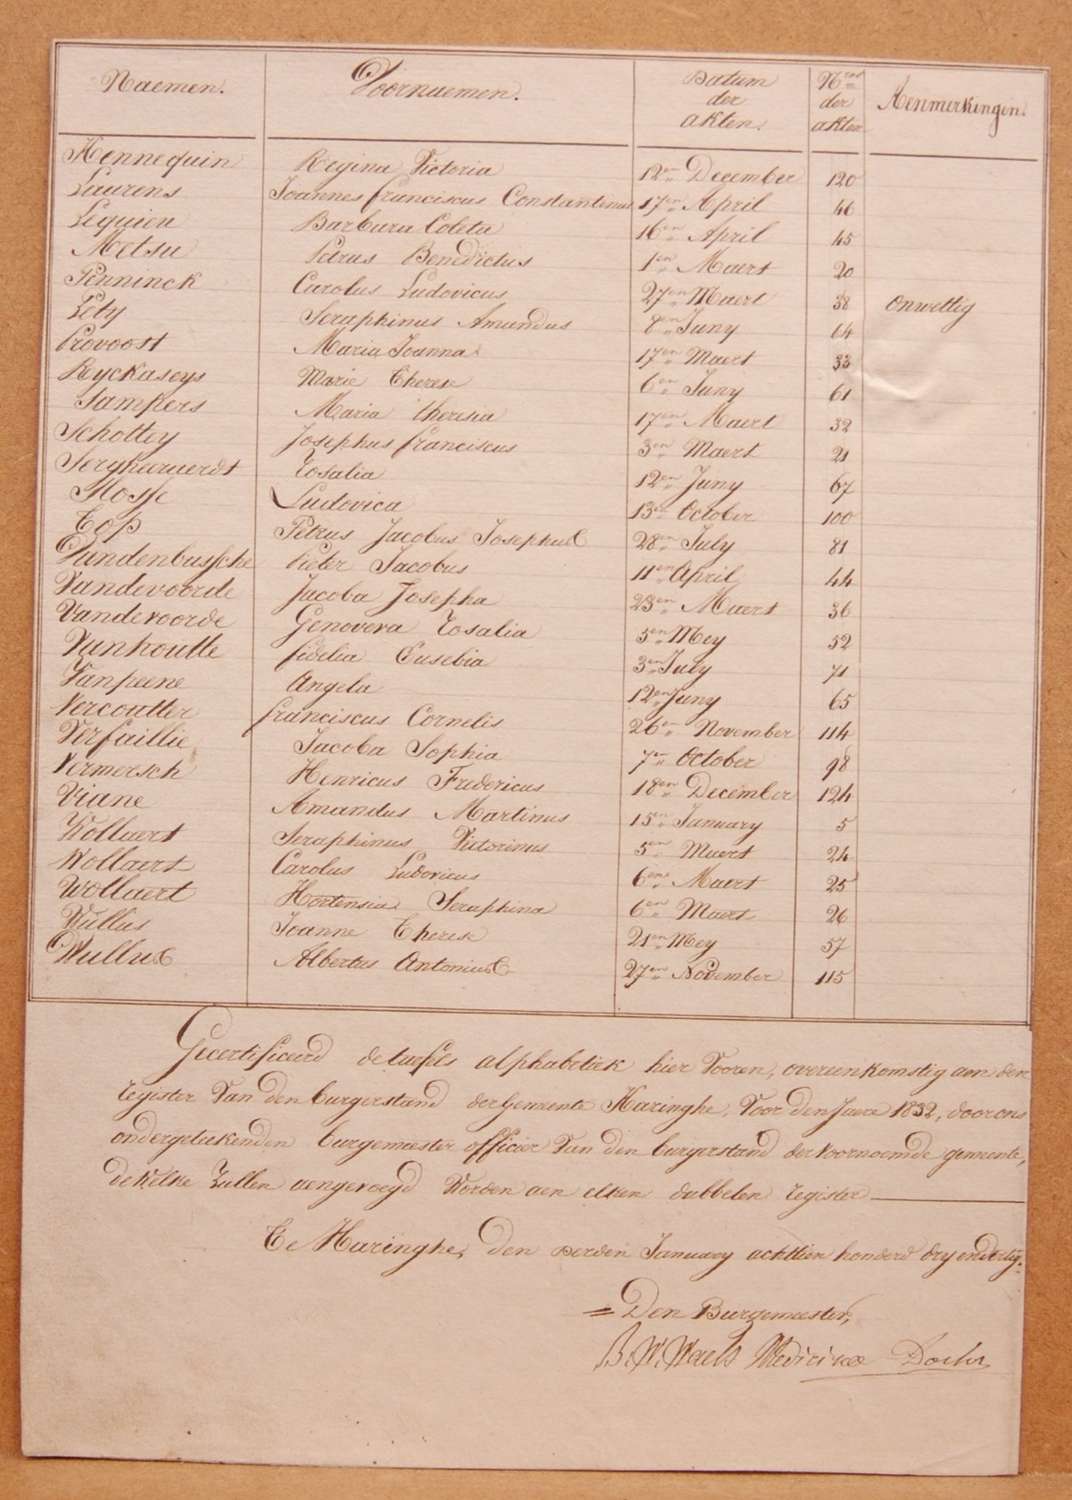 Naemen. Voornaemen. Datum der akten. N.ros der akten Aenmerkingen.
Hennequin Regina Victoria 12en December 120
Laurens Joannes franciscus Constantinus 17en April 46
Lequieu Barbara Coleta 16en April 45
Metsu Petrus Benedictus 1en Maert 20
Penninck Carolus Ludovicus 27en Maert 38 onwettig
Poty Seraphinus Amandus 8en Juny 64
Provoost Maria Joanna 17en Maert 33
Ryckaseys Marie Therese 6en Juny 61
Sampers Maria theresia 17en Maert 32
Schottey Josephus franciscus 3en Maert 21
Rosalia 12en Juny 67
Ludovica 13en October 100
Top Petrus Jacobus Josephus 28en July 81
Vandenbussche Pieter Jacobus 11en April 44
Vandevoorde Jacoba Josepha 23en Maert 36
Vandevoorde Genoveva Rosalia 5en Mey 52
Vanhoutte fidelia Eusebia 3en July 71
Vanpeene Angela 12en Juny 65
Vercoutter franciscus Cornelis 26en November 114
Verfaillie Jacoba Sophia 7en October 98
Vermersch Henricus Fredericus 18en December 124
Viane Amandus Martinus 15en January 5
Wollaert Seraphinus Victorinus 5en Maert 24
Wollaert Carolus Ludovicus 6en Maert 25
Wollaert Hortensia Seraphina 6en Maert 26
Wullus Joanne Therese 21en Mey 57
Wullus Albertus Antonius 27en November 115
Gecertificeerd de taefels alphabetiek hier vooren, overeenkomstig aen den
register van den burgerstand der Gemeente Haringhe, voor den Jaere 1832, door ons
ondergeteekenden burgemeester officier van den burgerstand der voornoemde gemeente,
dewelke zullen aengevoegd worden aen elken dubbelen register
Te Haringhe, den derden January achttien honderd dry en dertig.
Den Burgemeester,
B. W. Waels Medicinæ Doctor